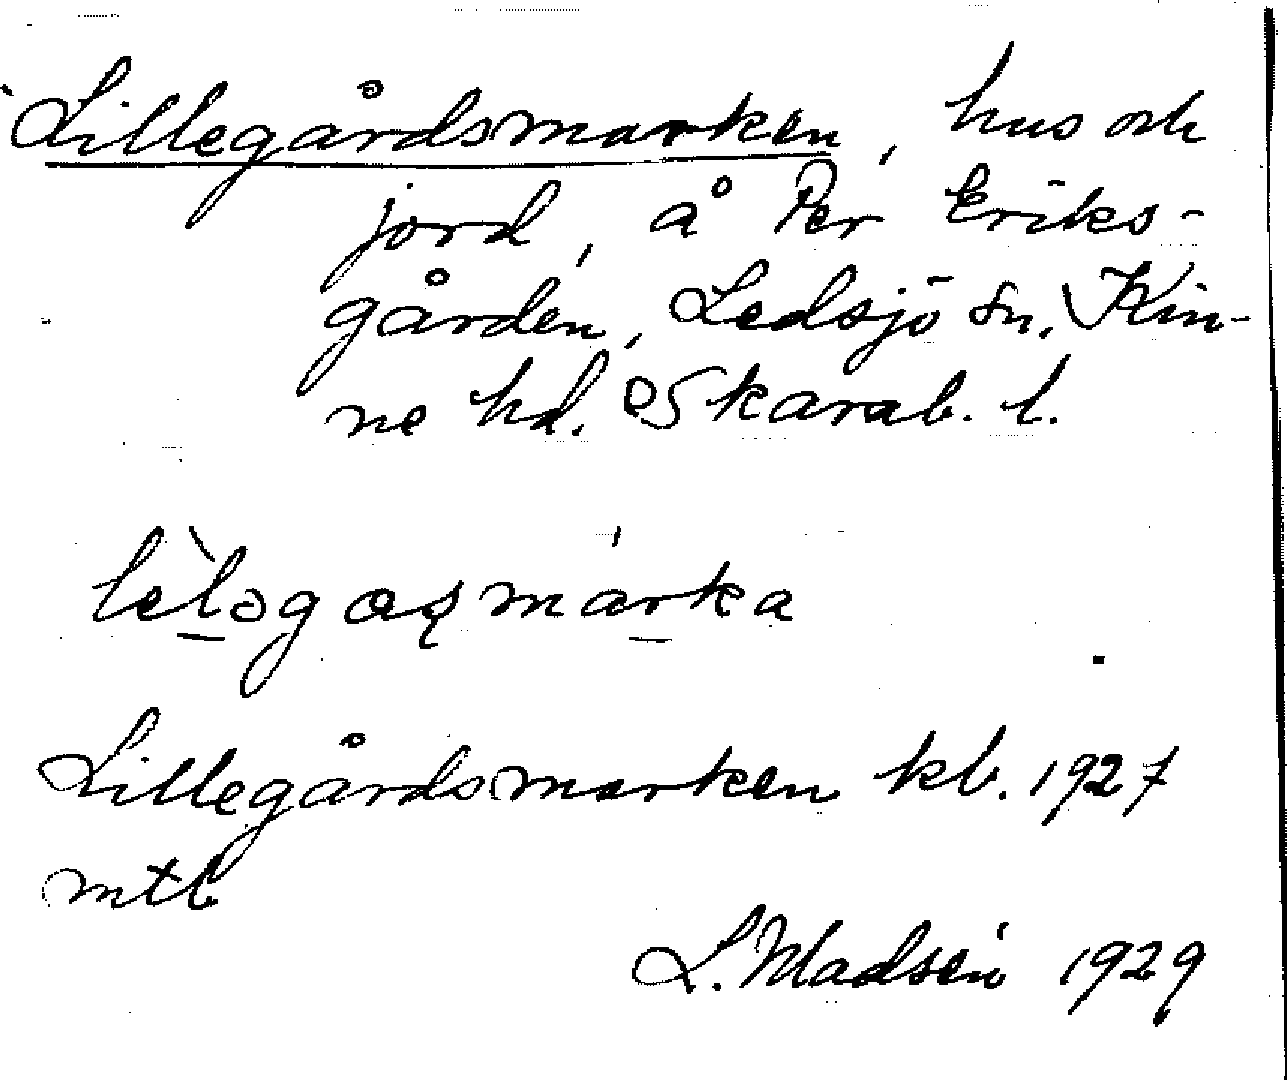 Lillegårdsmarken, hus och
jord, å Per Eriks-
gården, Ledsjö sn, Kin-
ne hd. Skarab. l.
Lillegårdsmarken kb. 1927
mtl
L. Madsén 1929